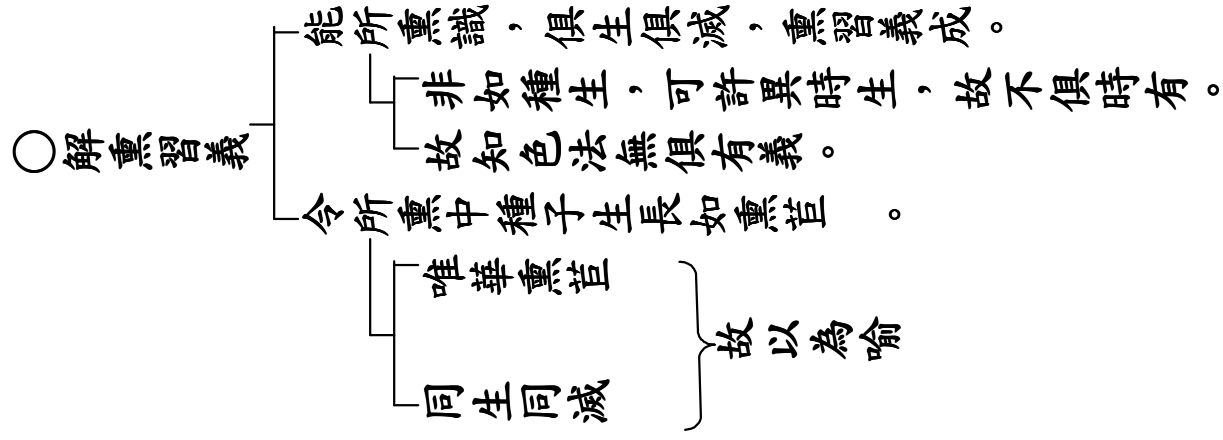 ○解熏習義
能所熏識，俱生俱滅，熏習義成。
非如種生，可許異時生，故不俱時有。
故知色法無俱有義。
令所熏中種子生長如熏苣。
唯華熏苣
同生同滅
故以為喻